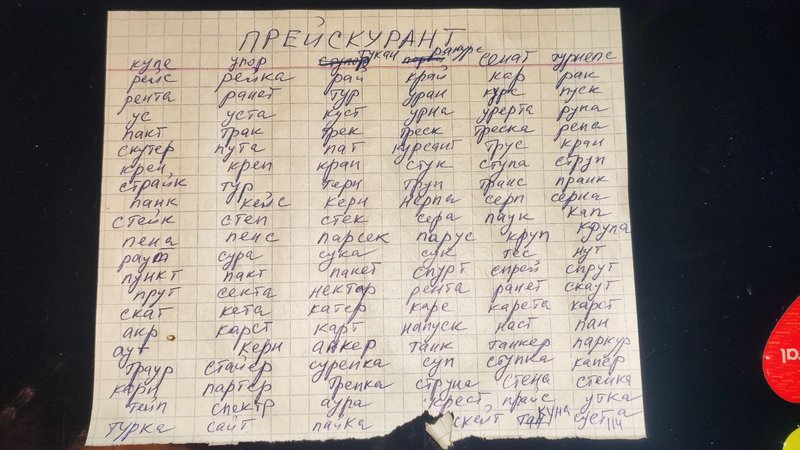 ПРЕЙСКУРАНТ
купе упор тукан ракурс сонат турнепс
рейс рейка рай край кар рак
рента ранет тур уран курс пуск
ус уста куст урна уретра рупа
пакт трак трек треск треска репа
скутер пута пат курсант трус кран
крен креп кран стук ступа струп
страйк тур терн труп транс пранк
панк кейс керн нерпа серп серна
стейк степ стек сера паук кап
пена пенс парсек парус круп крупа
раут сура сука сук тес нут
пункт пакт пакет спурт спрей спрут
прут секта нектар рента ранет скаут
скат кета катер каре карета карст
акр карст карт напуск наст пан
аут керн анкер танк танкер паркур
траур стайер сурепка суп ступка капер
карп партер трепка струна стена стейка
тейп спектр аура крест прайс утка
турка сайт пайка скейт куна суета
ral